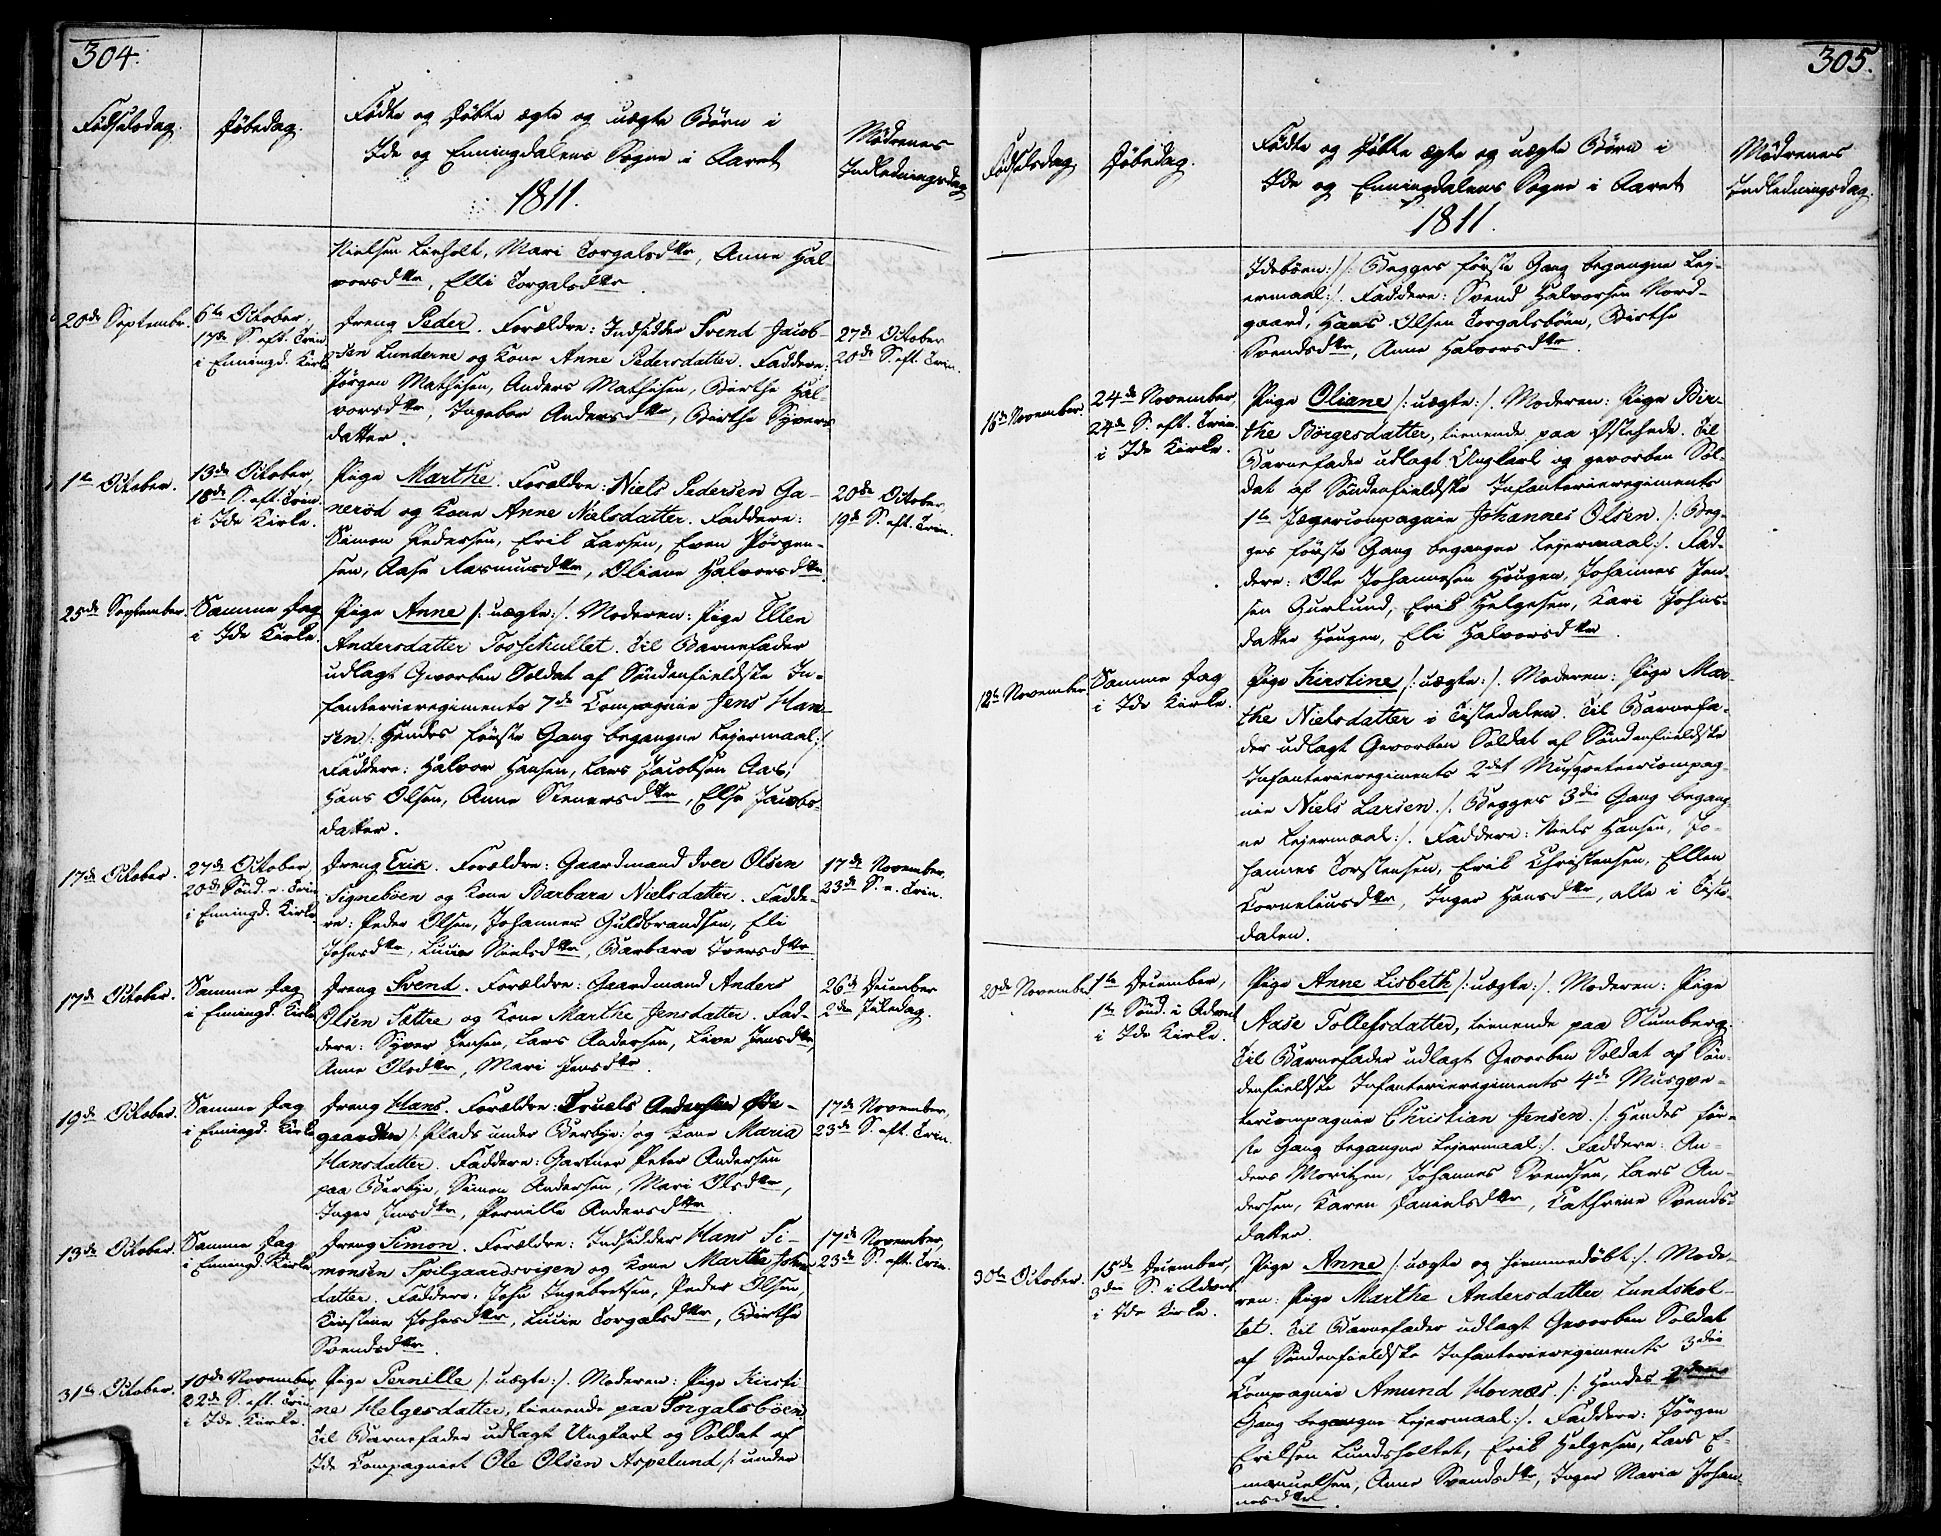 304.
Fødselsdag.
Døbedag.
Fødte og Døbte ægte og uægte Børn i
Ide og Enningdalens Sogne i Aaret
1811.
Mødrenes
Indledningsdag
Nielsen Liholt, Mari Torgalsdttr, Anne Hal-
vorsdttr, Elli Torgalsdttr.
20de Septembr.
6te October,
17de S. eft. Trin.
i Enningd. Kirke
Dreng Peder. Forældre: Indsidder Svend Jacob-
sen Lunderne og Kone Anne Pedersdatter. Faddere:
Jørgen Mathisen, Anders Mathisen, Birthe Hal-
vorsdttr, Ingebor Andersdttr, Birthe Syvers-
datter.
27de October
20de S. eft. Trin.
1te October.
13de October,
18de S. eft. Trin.
i Ide Kirke.
Pige Marthe. Forældre: Niels Pedersen Ga-
nerød og Kone Anne Nielsdatter. Faddere:
Simon Pedersen, Erik Larsen, Even Jørgen-
sen, Aase Rasmusdttr, Oliane Halvorsdttr.
20de October,
19de S. eft. Trin.
25de September.
Samme Dag
i Ide Kirke.
Pige Anne /: uægte :/. Moderen: Pige Ellen
Andersdatter Tosshullet. Til Barnefader
udlagt Gevorben Soldat af Søndenfieldske In-
fanterieregiments 7de Compagnie Jens Han-
sen /: Hendes første Gang begangne Leiermaal :/
Faddere: Halvor Hansen, Lars Jacobsen Aas,
Hans Olsen, Anne Stenersdttr, Else Jacobs-
datter.
17de October.
27de October
20de Sønd. e. Trin
i Enningd. Kirke
Dreng Erik. Forældre: Gaardmand Iver Olsen
Signebøen og Kone Barbara Nielsdatter. Fadde-
re: Peder Olsen, Johannes Guldbrandsen, Eli
Johnsdttr, Lucie Nielsdttr, Barbara Iversdttr.
17de November,
23de S. e. Trin.
17de October.
Samme Dag
i Enningd. Kirke
Dreng Svend. Forældre: Gaardmand Anders
Olsen Sættre og Kone Marthe Jensdatter. Fad-
dere: Syver Jensen, Lars Andersen, Live Jensdttr,
Anne Olsdttr, Mari Jensdttr.
26de December
2den Juledag.
19de October.
Samme Dag
i Enningd. Kirke
Dreng Hans. Forældre: Truels Andersen
gaarden /: Plads under Berbye :/ og Kone Maria
Hansdatter. Faddere: Gartner Peter Andersen
paa Berbye, Simon Andersen, Mari Olsdttr,
Inger Jensdttr, Pernille Andersdttr.
17de November,
23de S. eft. Trin.
13de October.
Samme Dag
i Enningd. Kirke
Dreng Simon. Forældre: Indsidder Hans Si-
monsen Spilgaardsvigen og Kone Marthe Johns-
datter. Faddere: John Ingebretsen, Peder Olsen,
Kirstine Johnsdttr, Lucie Torgalsdttr, Birthe
Svendsdttr.
17de November,
23de S. eft. Trin.
31te October.
10de November
22de S. eft. Trin
i Ide Kirke.
Pige Pernille /: uægte :/. Moderen: Pige Kirsti-
ne Helgesdatter, tienende paa Torgalsbøen.
Til Barnefader udlagt Ungkarl og Soldat af
Ide Compagniet Ole Olsen Aspelund /: under
305.
Fødselsdag
Døbedag.
Fødte og Døbte ægte og uægte Børn i
Ide og Enningdalens Sogne i Aaret
1811.
Mødrenes
Indledningsdag.
Idebøen :/ /: Begges første Gang begangne Lej-
ermaal :/. Faddere: Svend Halvorsen Nord-
gaard, Hans Olsen Torgalsbøen, Birthe
Svendsdttr, Anne Halvorsdttr.
16de November.
24de November,
24de S. eft. Trin.
i Ide Kirke.
Pige Oliane /: uægte :/. Moderen: Pige Bir-
the Børgesdatter, tienende paa Østehede. Til
Barnefader udlagt Ungkarl og gevorben Sol-
dat af Søndenfieldske Infanterieregiments
1te Jægercompagnie Johannes Olsen. /: Beg-
ges første Gang begangne Lejermaal :/. Fad-
dere: Ole Johannesen Hougen, Johannes Jen-
sen Gurlund, Erik Helgesen, Kari Johns-
datter Hougen, Eli Halvorsdttr.
12te November.
Samme Dag
i Ide Kirke.
Pige Kirstine /: uægte :/. Moderen: Pige Mar-
the Nielsdatter i Tistedalen. Til Barnefa-
der udlagt Gevorben Soldat af Søndenfieldske
Infanterieregiments 2det Musqveteercompag-
nie Niels Larsen. /: Begges 3die Gang begang-
ne Lejermaal :/. Faddere: Niels Hansen, Jo-
hannes Torstensen, Erik Christensen, Ellen
Corneliusdttr, Inger Hansdttr, alle i Tiste-
dalen.
20de November
1te December,
1te Sønd. i Advent
i Ide Kirke.
Pige Anne Lisbeth /: uægte :/. Moderen: Pige
Aase Tollefsdatter, tienende paa Stumberg.
Til Barnefader udlagt Gevorben Soldat af Søn-
denfieldske Infanterieregiments 4de Musqve-
tercompagnie Christian Jensen. /: Hendes før-
ste Gang begangne Lejermaal :/. Faddere: An-
ders Moritsen, Johannes Svendsen, Lars An-
dersen, Karen Danielsdttr, Kathrine Svends-
datter.
30te October.
15de December,
3die S. i Advent
i Ide Kirke.
Pige Anne /: uægte og hjemmedøbt :/. Mode-
ren: Pige Marthe Andersdatter Lundskol-
tet. Til Barnefader udlagt Gevorben Soldat
af Søndenfieldske Infanterieregiments 3die
Compagnie Amund Hornæs. /: Hendes 2den
Gang begangne Lejermaal :/. Faddere: Jørgen
Eriksen Lundsholtet, Erik Helgesen, Lars E-
manuelsen, Anne Svendsdttr, Inger Maria Johan-
nesdttr.